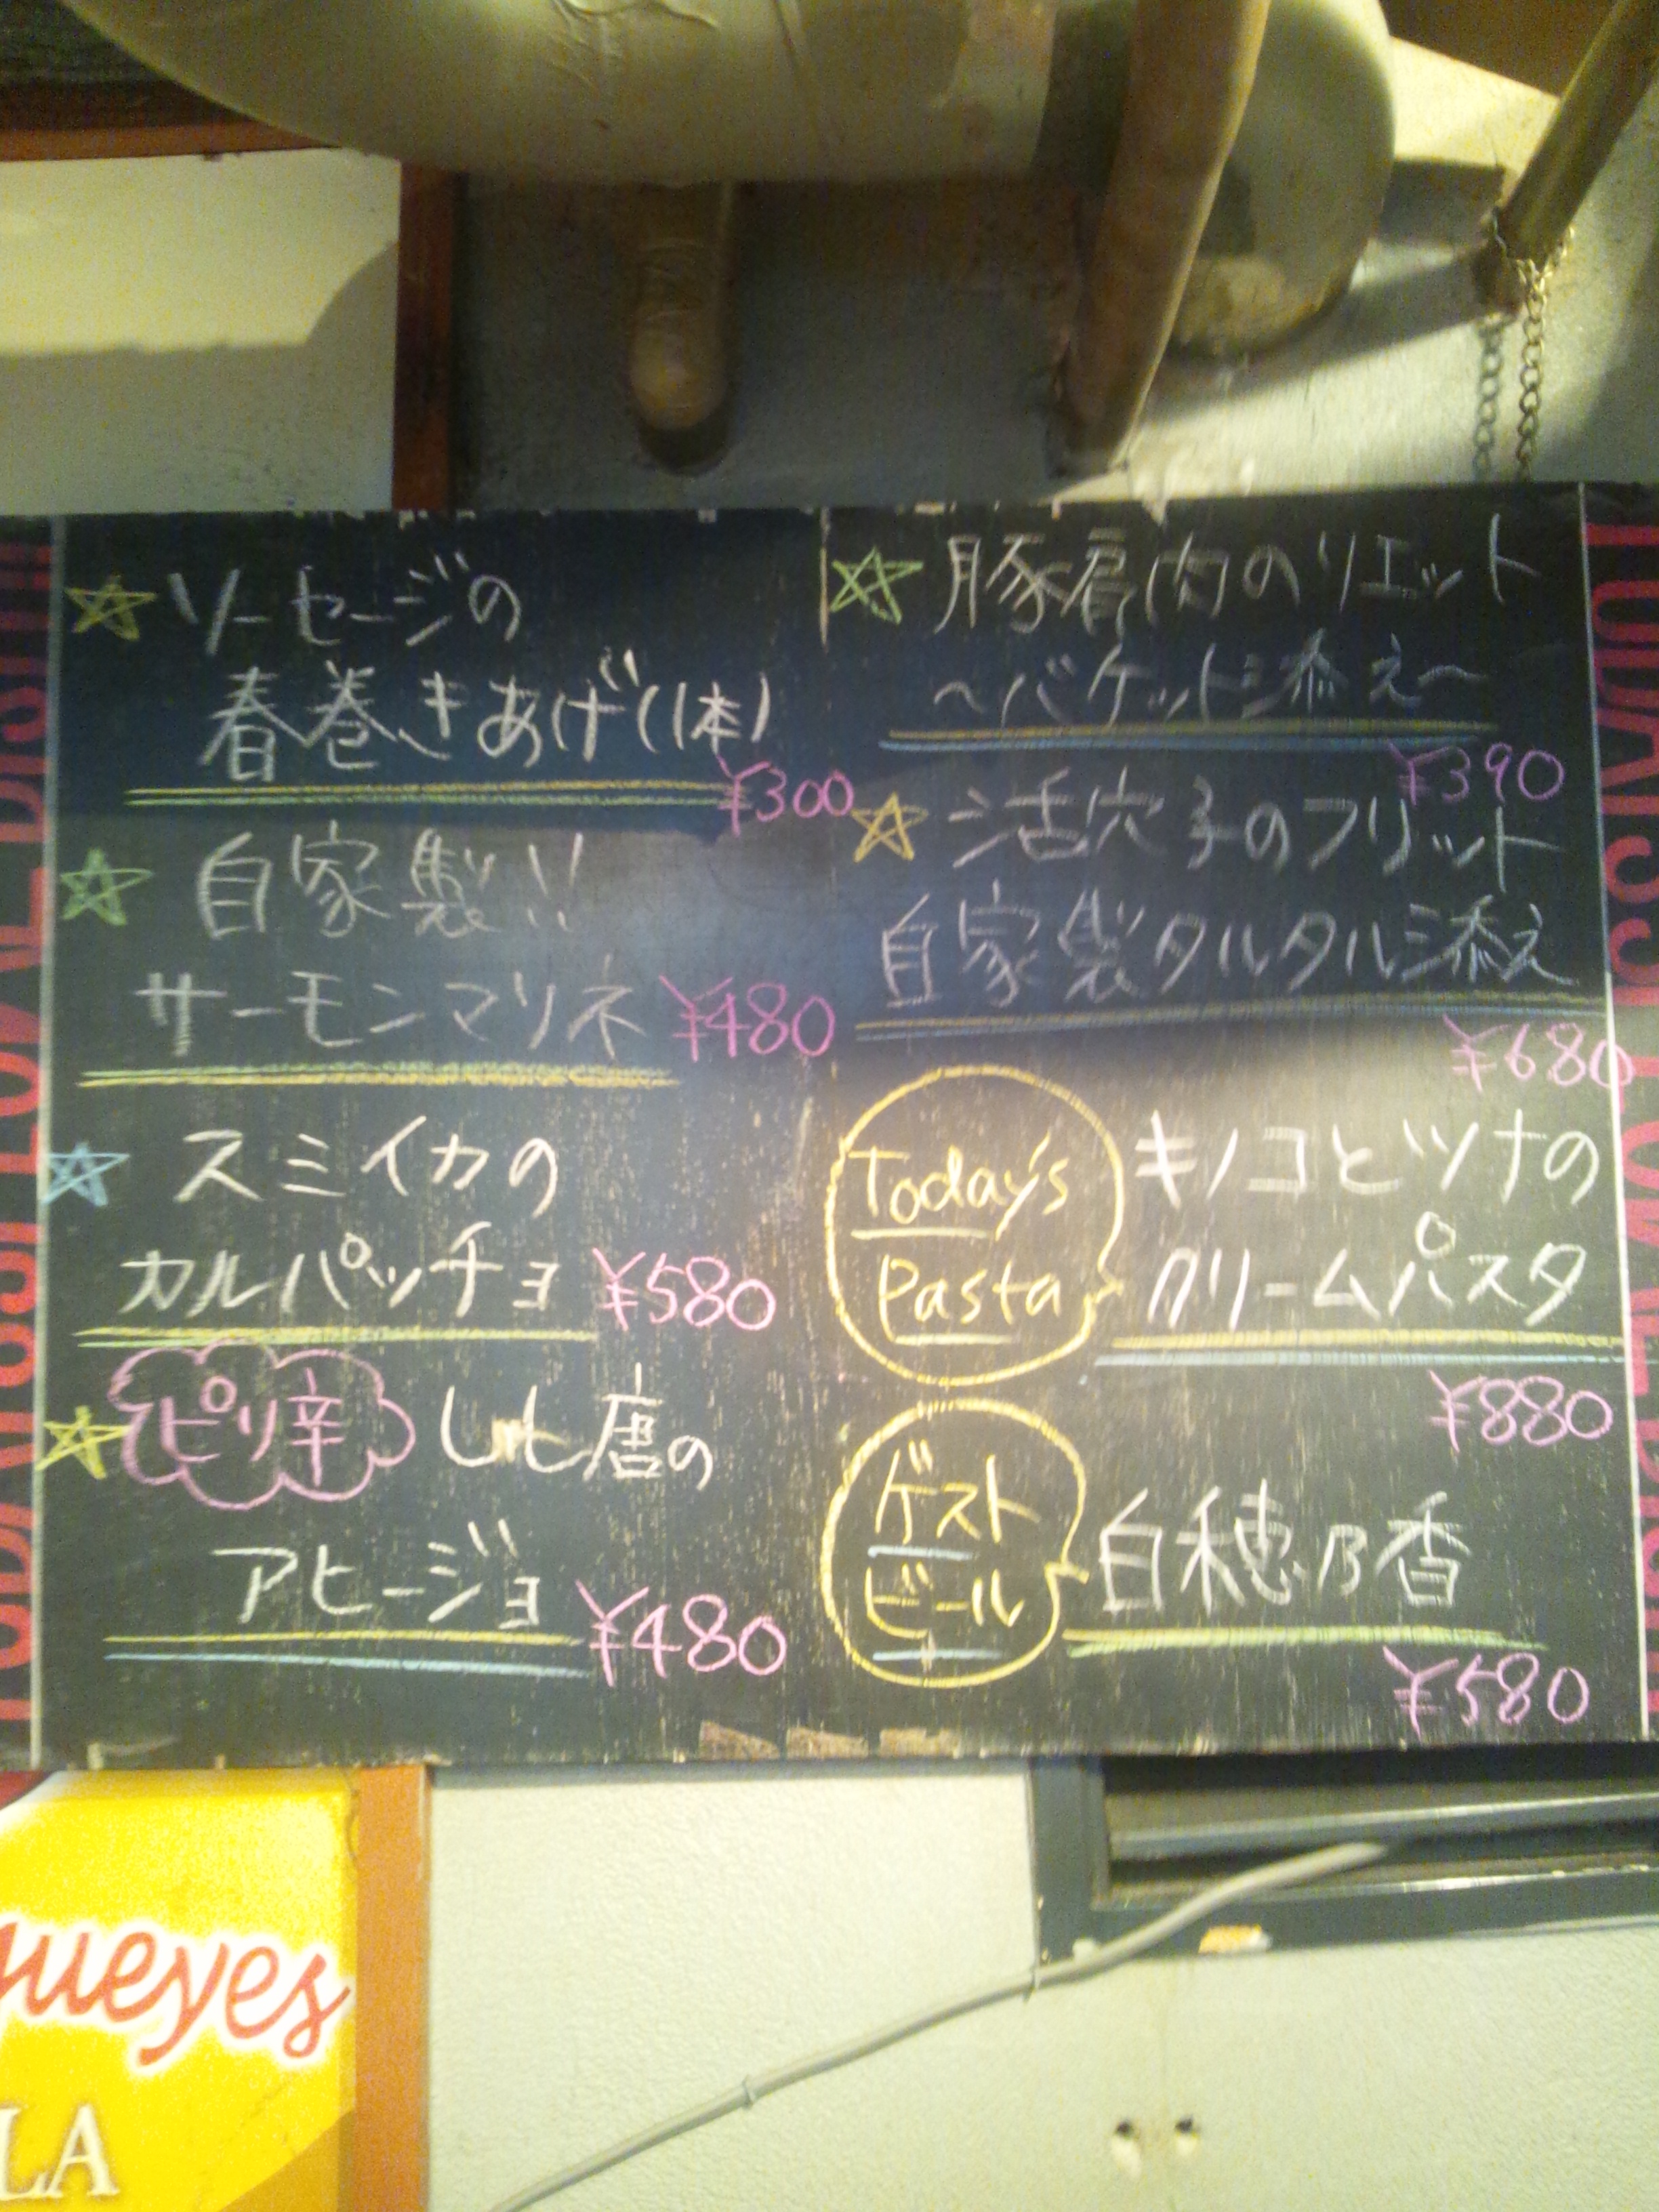 ソーセージの
春巻きあげ(1本)
¥300
自家製!!
サーモンマリネ ¥480
スミイカの
カルパッチョ ¥580
ピリ辛 しし唐の
アヒージョ ¥480
豚肩肉のリエット
～バケット添え～
¥390
活穴子のフリット
自家製タルタル添え
¥680
Today's
Pasta
キノコとツナの
クリームパスタ
¥880
ゲスト
ビール
白穂乃香
¥580
gueyes
LA